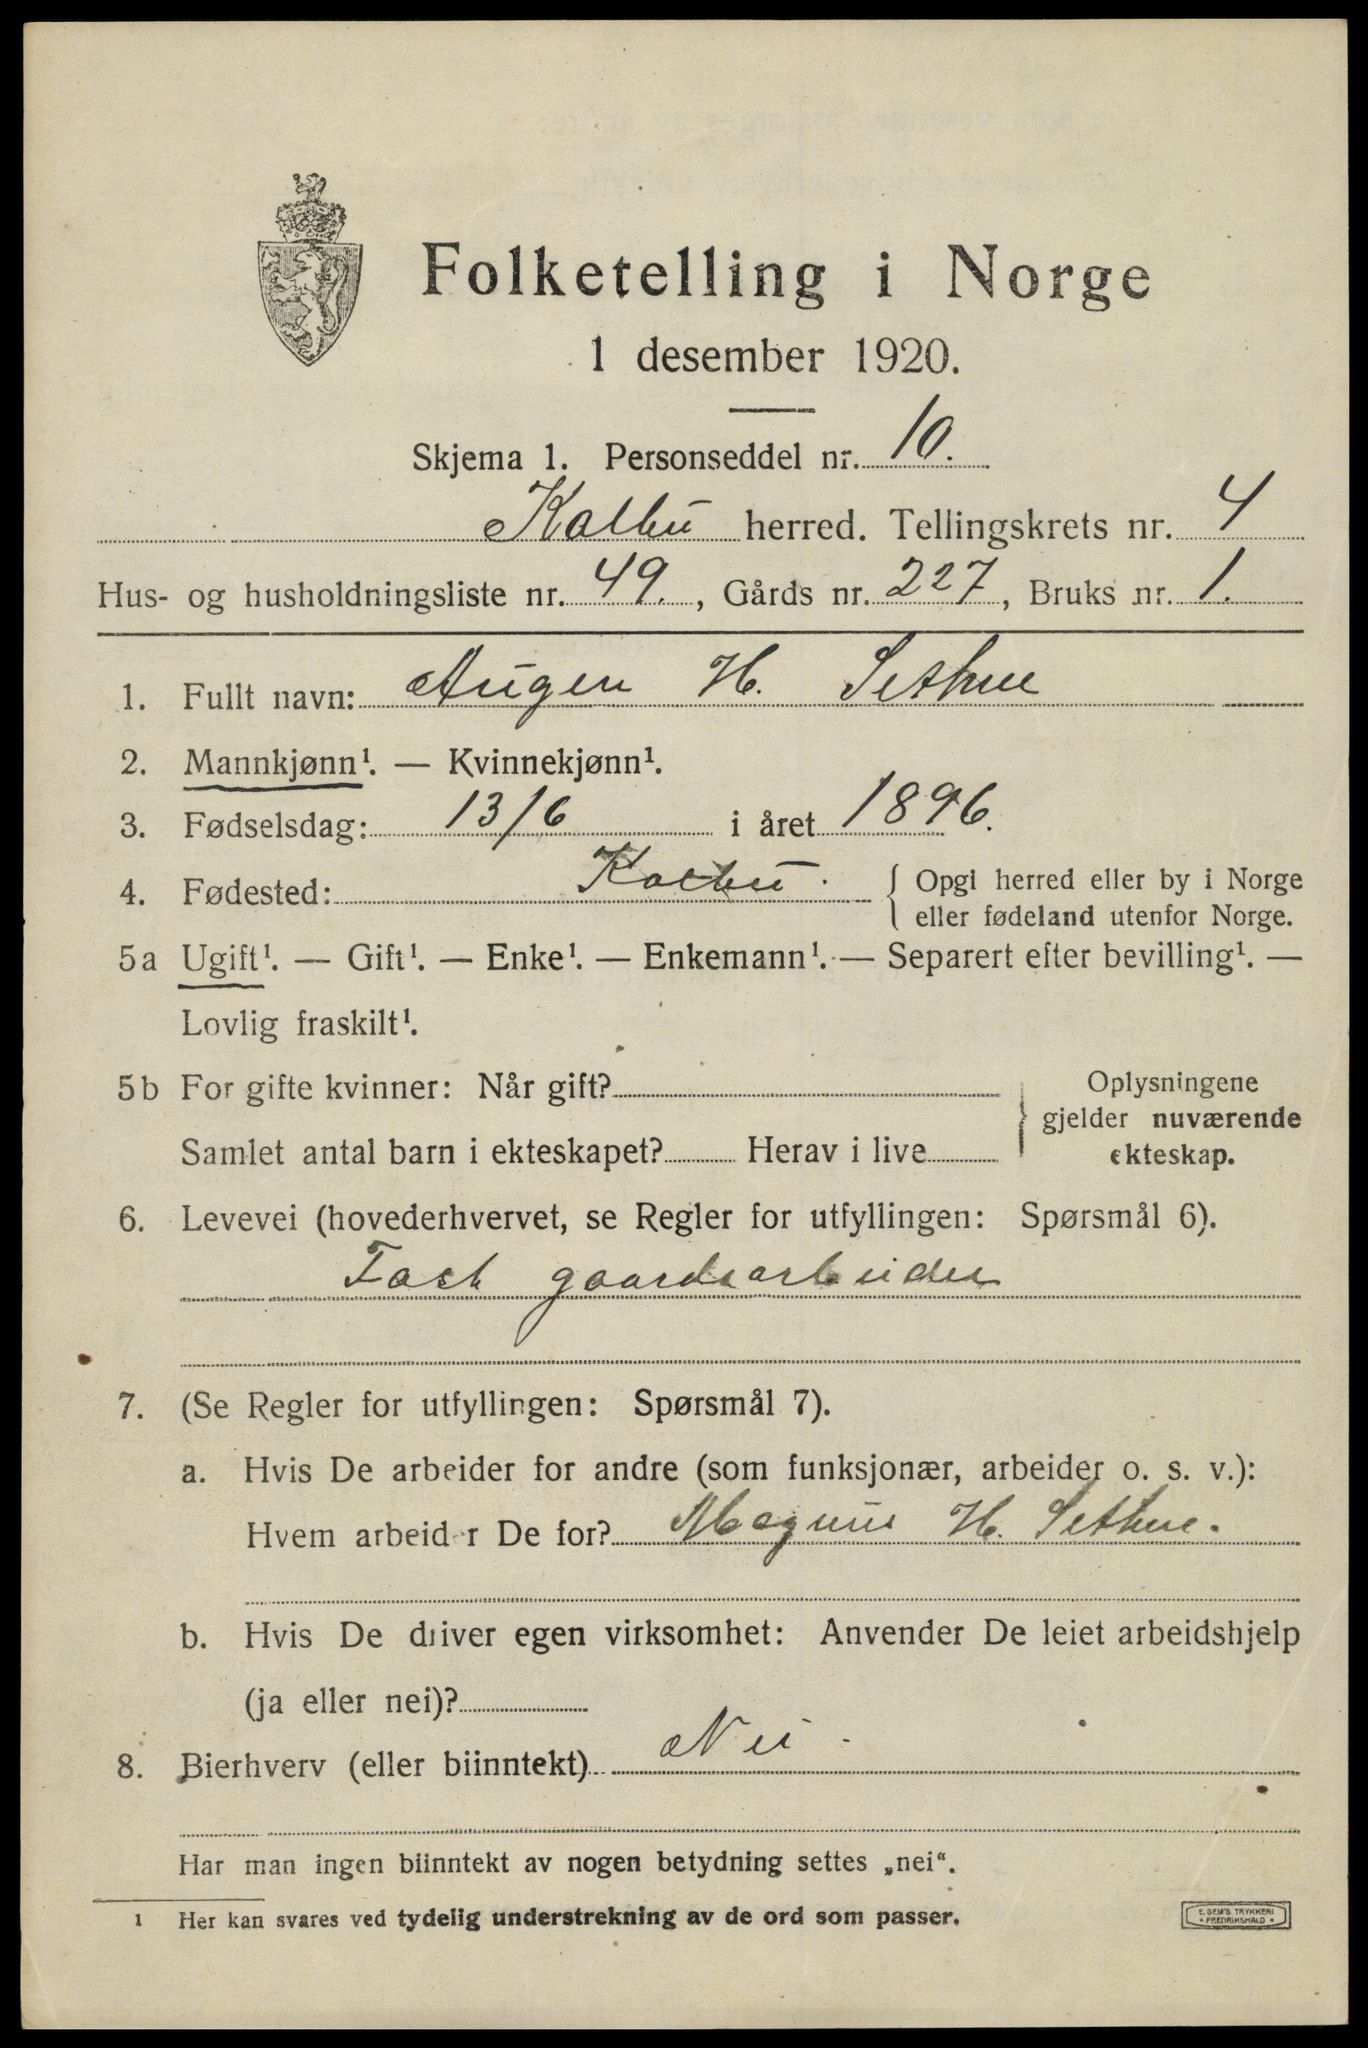 Folketelling i Norge
1 desember 1920.
Skjema 1. Personseddel nr. 10.
Kolbu herred. Tellingskrets nr. 4
Hus- og husholdningsliste nr. 49., Gårds nr. 227, Bruks nr. 1.
1. Fullt navn: Augen H. Sethne
2. Mannkjønn¹. — Kvinnekjønn¹.
3. Fødselsdag: 13/6 i året 1896.
4. Fødested: Kolbu. { Opgi herred eller by i Norge
eller fødeland utenfor Norge.
5a Ugift¹. — Gift¹. — Enke¹. — Enkemann¹. — Separert efter bevilling¹. —
Lovlig fraskilt¹.
5b For gifte kvinner: Når gift? } Oplysningene
gjelder nuværende
ekteskap.
Samlet antal barn i ekteskapet? Herav i live
6. Levevei (hovederhvervet, se Regler for utfyllingen: Spørsmål 6).
Fast gaardsarbeider
7. (Se Regler for utfyllingen: Spørsmål 7).
a. Hvis De arbeider for andre (som funksjonær, arbeider o. s. v.):
Hvem arbeider De for? Magnus H. Sethne.
b. Hvis De driver egen virksomhet: Anvender De leiet arbeidshjelp
(ja eller nei)?
8. Bierhverv (eller biinntekt) Nei.
Har man ingen biinntekt av nogen betydning settes „nei“.
1 Her kan svares ved tydelig understrekning av de ord som passer.
E. SEM'S TRYKKERI
• FREDRIKSHALD •